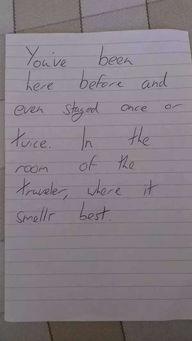 You've been
here before and
even stayed once or
twice. In the
room of the
traveler, where it
smells best.